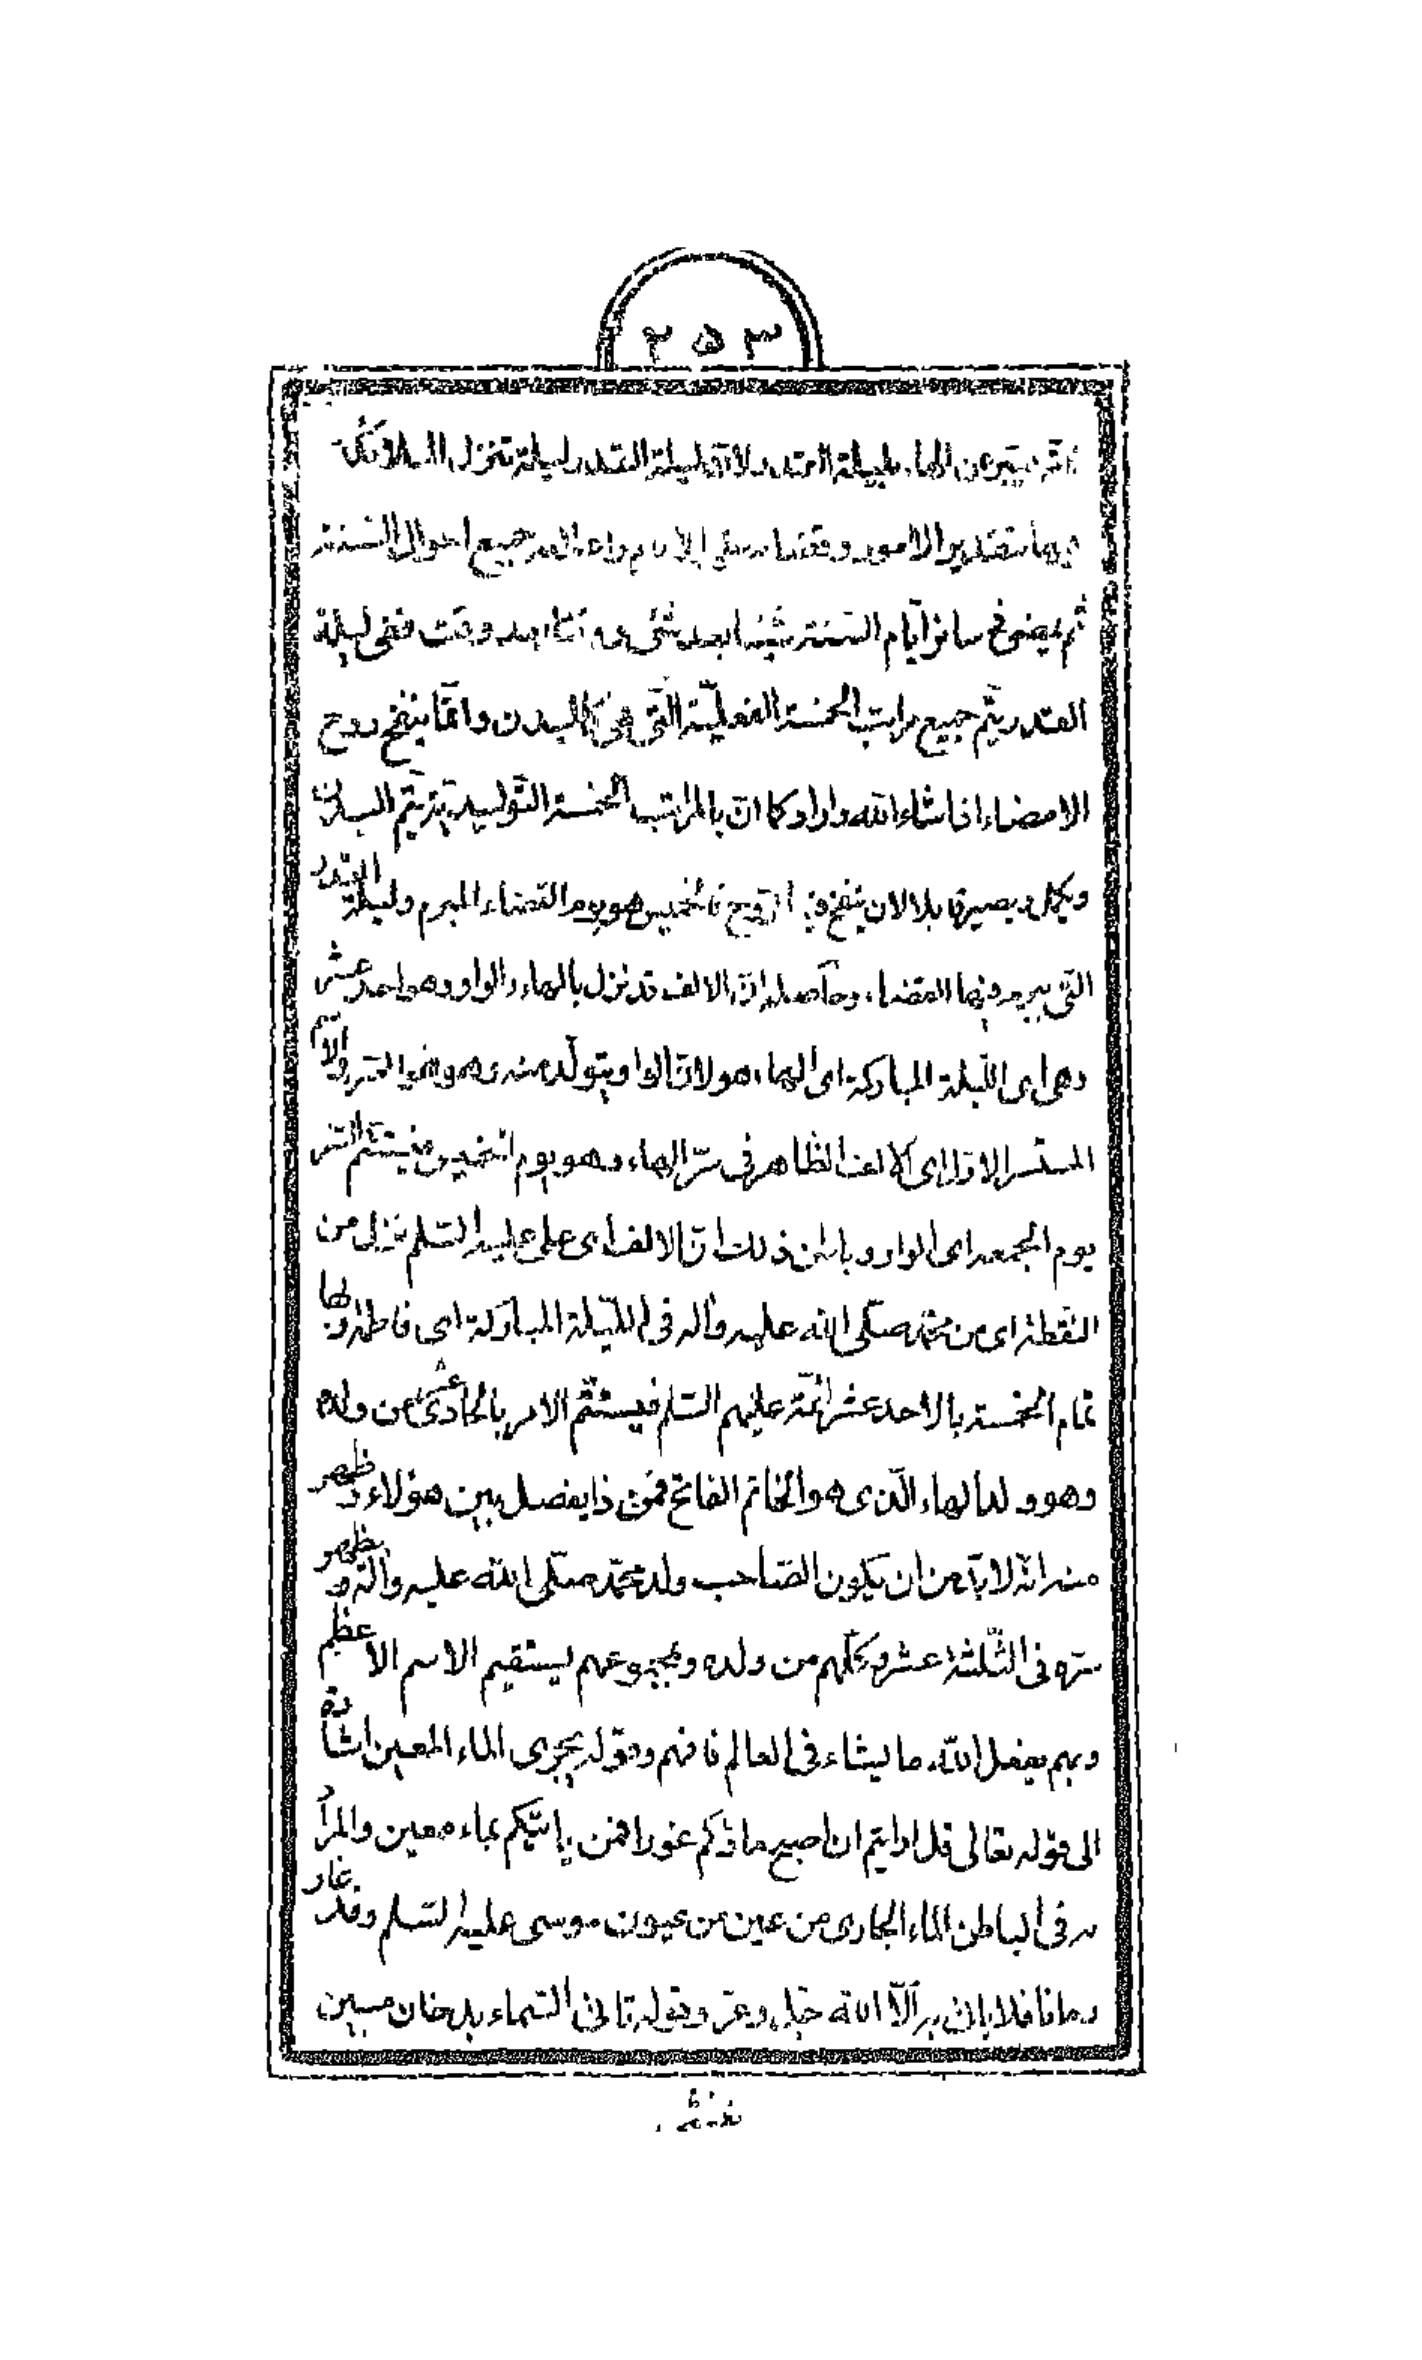 ۲۵۳
عن الهاء بليلة القدر لان ليلة القدر ليلة تنزل الملائكة
فيها بتقدير الامور وقضاء جميع احوال السنة
ثم يمضى فى سائر ايام السنة شيئا بعد شئ وقت ففى ليلة
القدر يتم جميع مراتب الخمسة الفعليّة الّتى هى كالبدن وانّما ينفخ روح
الامضاء اذا شاء الله واراد كما انّ بالمراتب الخمسة التّوليديّة يتم البدن
ويكمل ويصير قابلا لان ينفخ فيه الروح فالخميس هو يوم القضاء المبرم وليلة القدر
التى يبرم فيها القضاء وحاصله انّ الالف قد نزل بالهاء والواو وهو احد عشر
وهى اى اللّيلة المباركة اى الهاء هو لانّ الواو يتولّد منه وهو والّا تم
المستسر الاول اى الالف الظاهر فى سرّ الهاء وهو يوم الخميس فيستتم السر
يوم الجمعة اى الواو وباطن ذلك انّ الالف اى على عليه السّلم نزل من
النقطة اى من محمّد صلّى الله عليه وآله فى اللّيلة المباركة اى فاطمة وبها
تمام الخمسة بالاحد عشر ائمّة عليهم السّلم فيستتمّ الامر بالحادى عشر من ولده
وهو ولد الهاء الّذى هو الخاتم الفاتح فمن ذا يفصل بين هؤلاء وظهر
منه انّه لابدّ من ان يكون الصّاحب ولد محمّد صلّى الله عليه وآله ويظهر
سرّه فى الثّلثة عشر وكلّهم من ولده وبمجموعهم يستقيم الاسم الاعظم
وبهم يفعل الله ما يشاء فى العالم فافهم وقوله يجرى الماء المعين اشارة
الى قوله تعالى قل ارايتم ان اصبح ماؤكم غورا فمن ياتيكم بماء معين والمرا
د فى الباطن الماء الجارى من عين من عيون موسى عليه السّلم وقد غار
زمانا فلا ياتى به الّا الله جلّ وعزّ وقوله تاتى السّماء بدخان مبين